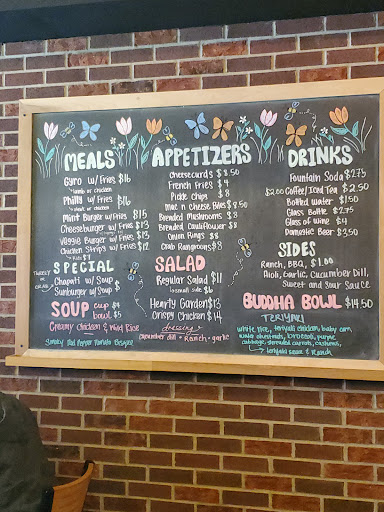 MEALS
Gyro w/ Fries $16
Philly w/ Fries $16
Mint Burger w/ Fries $15
Cheeseburger w/ Fries $13
Veggie Burger w/ Fries $13
Chicken Strips w/ Fries $12
SPECIAL
Chapati w/ Soup
Sunburger w/ Soup $
SOUP cup $4
bowl $5
Creamy Chicken & Wild Rice
APPETIZERS
Cheesecurds $8.50
French Fries $4
Pickle Chips $8
Mac n Cheese Bites $9.50
Breaded Mushrooms $8
Breaded Cauliflower $8
Onion Rings $8
Crab Rangoons $8
SALAD
Regular Salad $11
small side $6
Hearty Garden $13
Crispy Chicken $14
dressing
cucumber dill • Ranch • garlic
DRINKS
Fountain Soda $2.75
$2.00 Coffee/Iced Tea $2.50
Bottled Water $1.50
Glass Bottle $2.75
Glass of Wine $4
Domestic Beer $3.50
SIDES
Ranch, BBQ, $1.00
Aioli, Garlic, Cucumber Dill,
Sweet and Sour Sauce
BUDDHA BOWL $14.50
TERIYAKI
white rice, teriyaki chicken, baby corn,
water chestnuts, broccoli, purple
cabbage, shredded carrots,
teriyaki sauce & Ranch